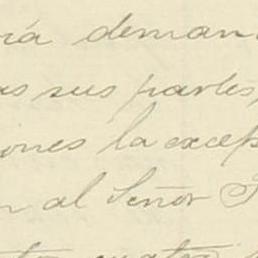 ría deman
as sus partes,
iones la excep
n al Señor